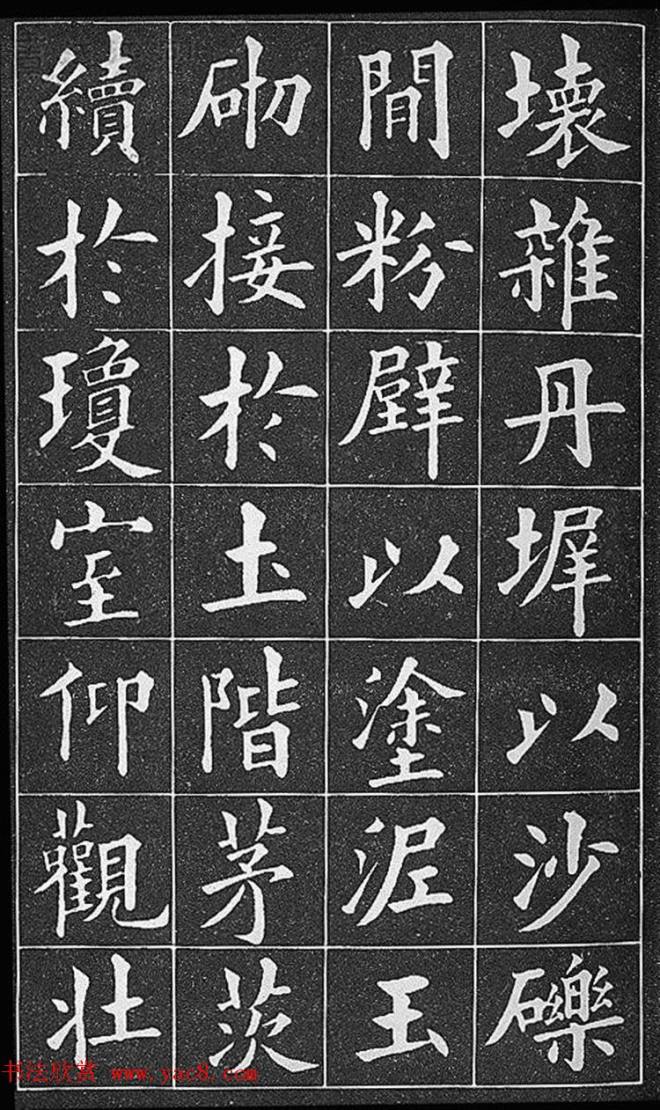 壞雜丹墀以沙礫
間粉壁以塗泥玉
砌接於土階茅茨
續於瓊室仰觀壯
书法欣赏 www.yac8.com